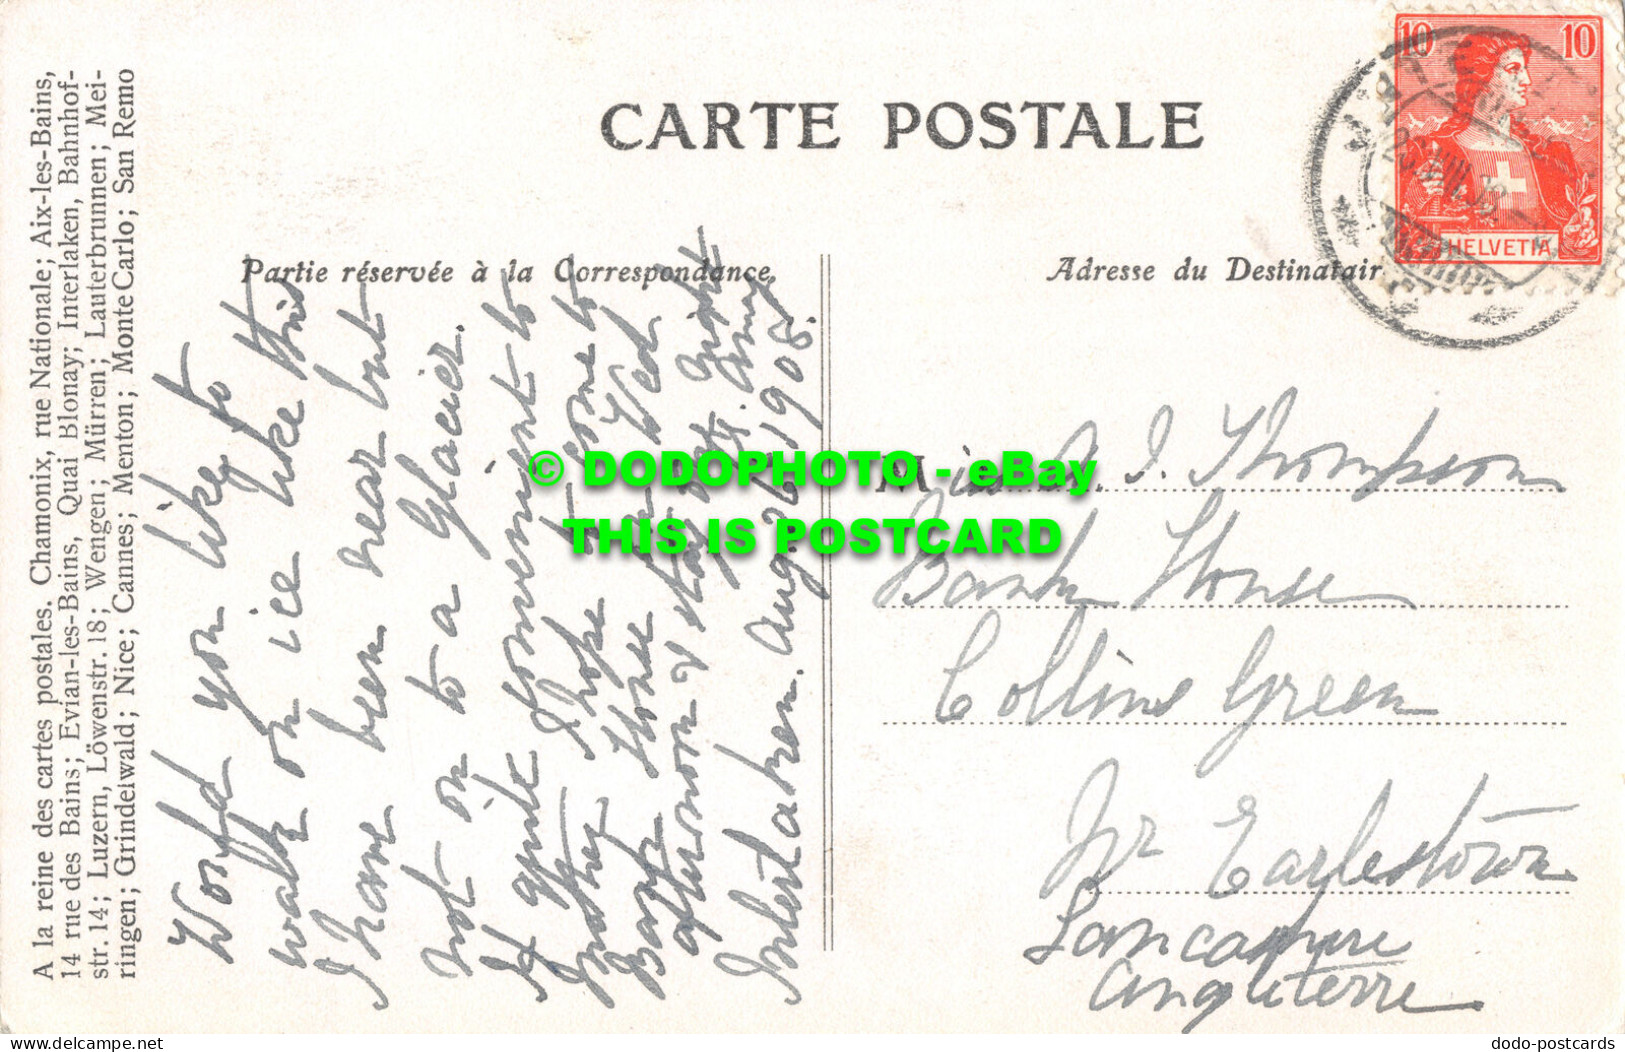 CARTE POSTALE
Partie réservée à la Correspondance.
Adresse du Destinatair
A la reine des cartes postales. Chamonix, rue Nationale; Aix-les-Bains,
14 rue des Bains; Evian-les-Bains, Quai Blonay; Interlaken, Bahnhof-
str. 14; Luzern, Löwenstr. 18; Wengen; Mürren; Lauterbrunnen; Mei-
ringen; Grindelwald; Nice; Cannes; Menton; Monte Carlo; San Remo
Would you like to
walk on ice like this
I have been near but
not on to a Glacier.
If quite convenient to
mother I hope to come to
Bank House on Wed
afternoon & stay all night.
Amy
Interlaken. Aug 26 1908.
10 10
HELVETIA
Miss A. I. Thompson
Bank House
Collins Green
Nr Earlestown
Lancashire
Angleterre
© DODOPHOTO - eBay
THIS IS POSTCARD
delcampe.net
dodo-postcards